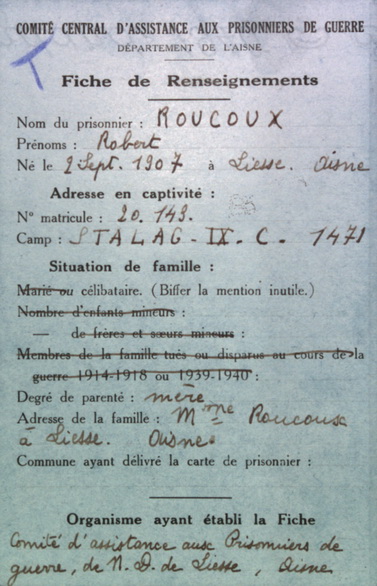 COMITÉ CENTRAL D'ASSISTANCE AUX PRISONNIERS DE GUERRE
DÉPARTEMENT DE L'AISNE
T
Fiche de Renseignements
Nom du prisonnier : ROUCOUX
Prénoms : Robert
Né le 2 Sept. 1907 à Liesse. Aisne
Adresse en captivité :
N° matricule : 20.143.
Camp : STALAG-IX.C. 1471
Situation de famille :
Marié ou célibataire. (Biffer la mention inutile.)
Nombre d'enfants mineurs :
— de frères et sœurs mineurs :
Membres de la famille tués ou disparus au cours de la
guerre 1914-1918 ou 1939-1940 :
Degré de parenté : mère
Adresse de la famille : Mme Roucoux
à Liesse. Aisne
Commune ayant délivré la carte de prisonnier :
Organisme ayant établi la Fiche
Comité d'assistance aux Prisonniers de
guerre, de N.D. de Liesse, Aisne